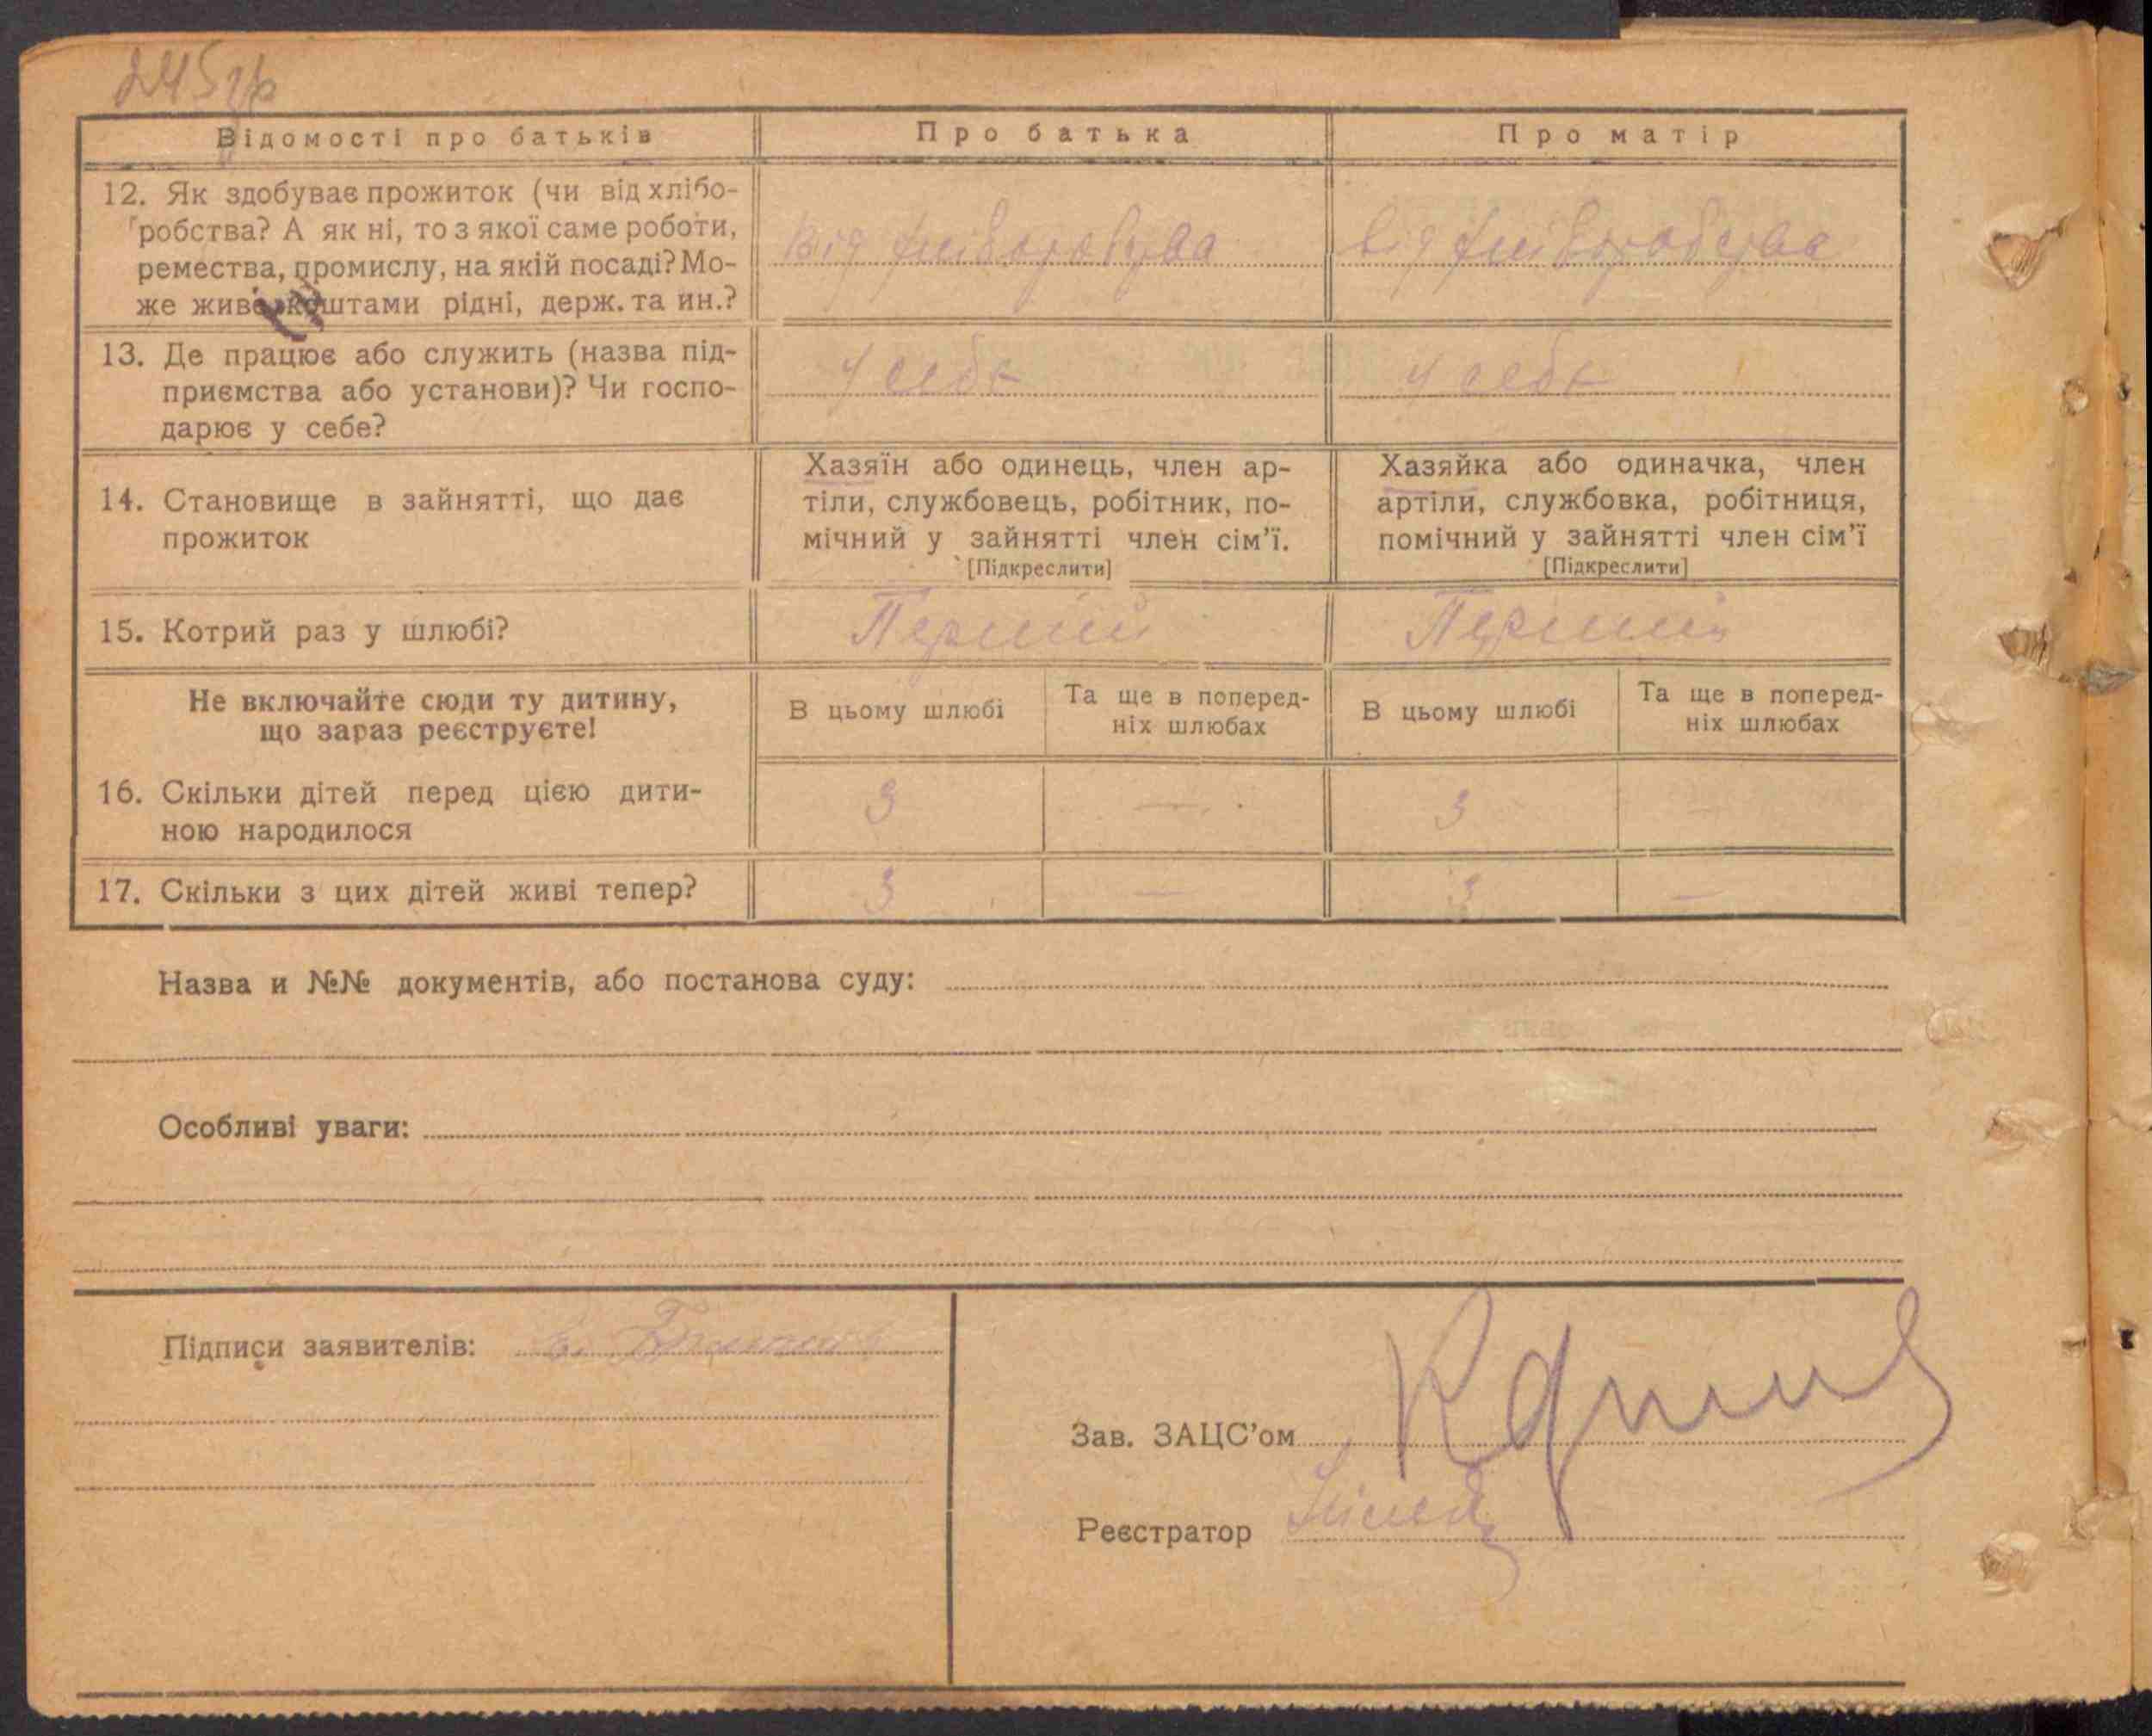 245
Відомості про батьків
Про батька
Про матір
12. Як здобуває прожиток (чи від хлібо-
робства? А як ні, то з якої саме роботи,
ремества, промислу, на якій посаді? Мо-
же живе коштами рідні, держ. та ин.?
від хліборобства
від хліборобства
13. Де працює або служить (назва під-
приємства або установи)? Чи госпо-
дарює у себе?
у себе
у себе
14. Становище в зайнятті, що дає
прожиток
Хазяїн або одинець, член ар-
тіли, службовець, робітник, по-
мічний у зайнятті член сім'ї.
[Підкреслити]
Хазяйка або одиначка, член
артіли, службовка, робітниця,
помічний у зайнятті член сім'ї
[Підкреслити]
15. Котрий раз у шлюбі?
Перший
Перший
Не включайте сюди ту дитину,
що зараз реєструєте!
В цьому шлюбі
Та ще в поперед-
ніх шлюбах
В цьому шлюбі
Та ще в поперед-
ніх шлюбах
16. Скільки дітей перед цією дити-
ною народилося
3
—
3
—
17. Скільки з цих дітей живі тепер?
3
—
3
—
Назва и №№ документів, або постанова суду:
Особливі уваги:
Підписи заявителів:
Зав. ЗАЦС'ом
Реєстратор